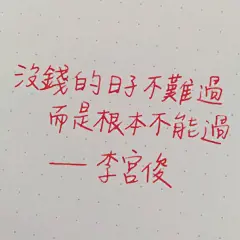 沒錢的日子不難過
而是根本不能過
── 李宮俊